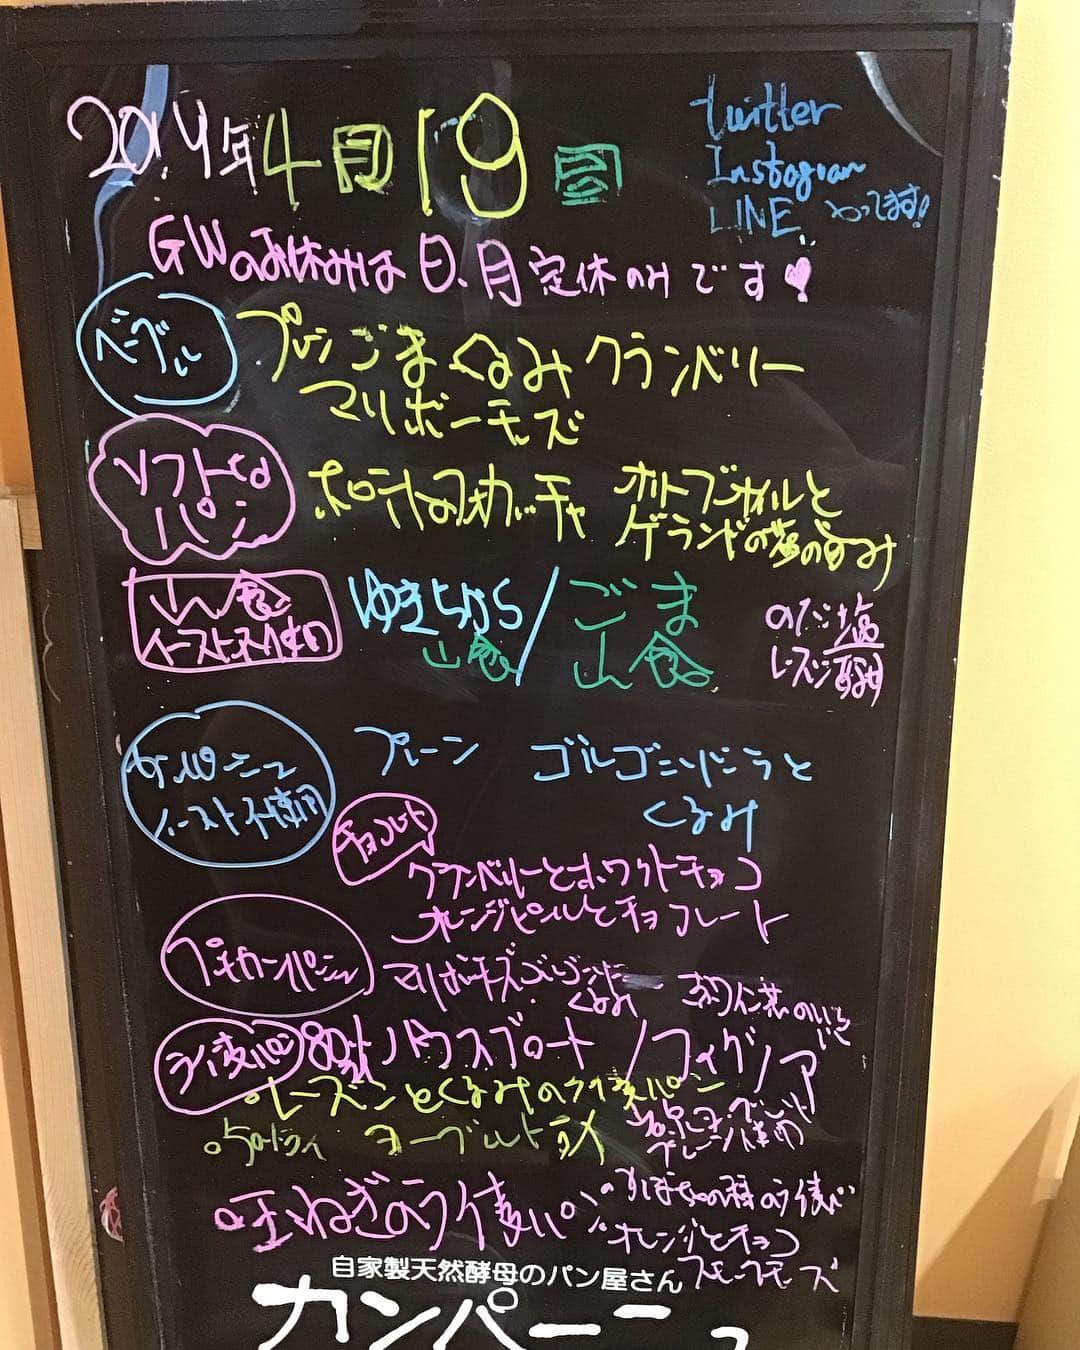 2019年4月19日
twitter
Instagram
LINE やってます!
GWのお休みは日、月定休のみです♥
ベーグル
プレーン ごま くるみ クランベリー
マリボーチーズ
ソフトな
パン
フォカッチャ
オリーブオイルと
ゲランドの塩のみ
山食
イースト不使用
ゆきちから
山食
/
ごま
山食
のだ塩
レーズン酵母
カンパーニュ
イースト不使用
プレーン
ゴルゴンゾーラと
くるみ
チョコレート
クランベリーとホワイトチョコ
オレンジピールとチョコレート
プチカンパーニュ
マリボーチーズ ゴルゴンゾーラ
くるみ
ライ麦パン
80% ハウスブロート / フィグノア
レーズンとくるみのライ麦パン
50%ライ ヨーグルト
玉ねぎのライ麦パン
かぼちゃの種のライ麦パン
オレンジとチョコ
スモークチーズ
自家製天然酵母のパン屋さん
カンパーニュ